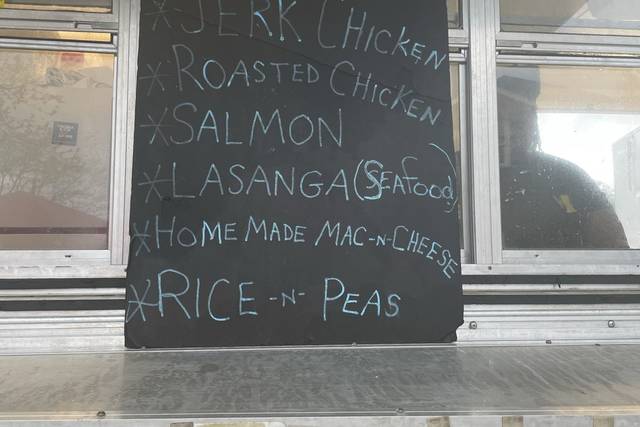 *JERK CHICKEN
*ROASTED CHICKEN
*SALMON
*LASANGA (SEAFOOD)
*HOMEMADE MAC-N-CHEESE
*RICE -N- PEAS